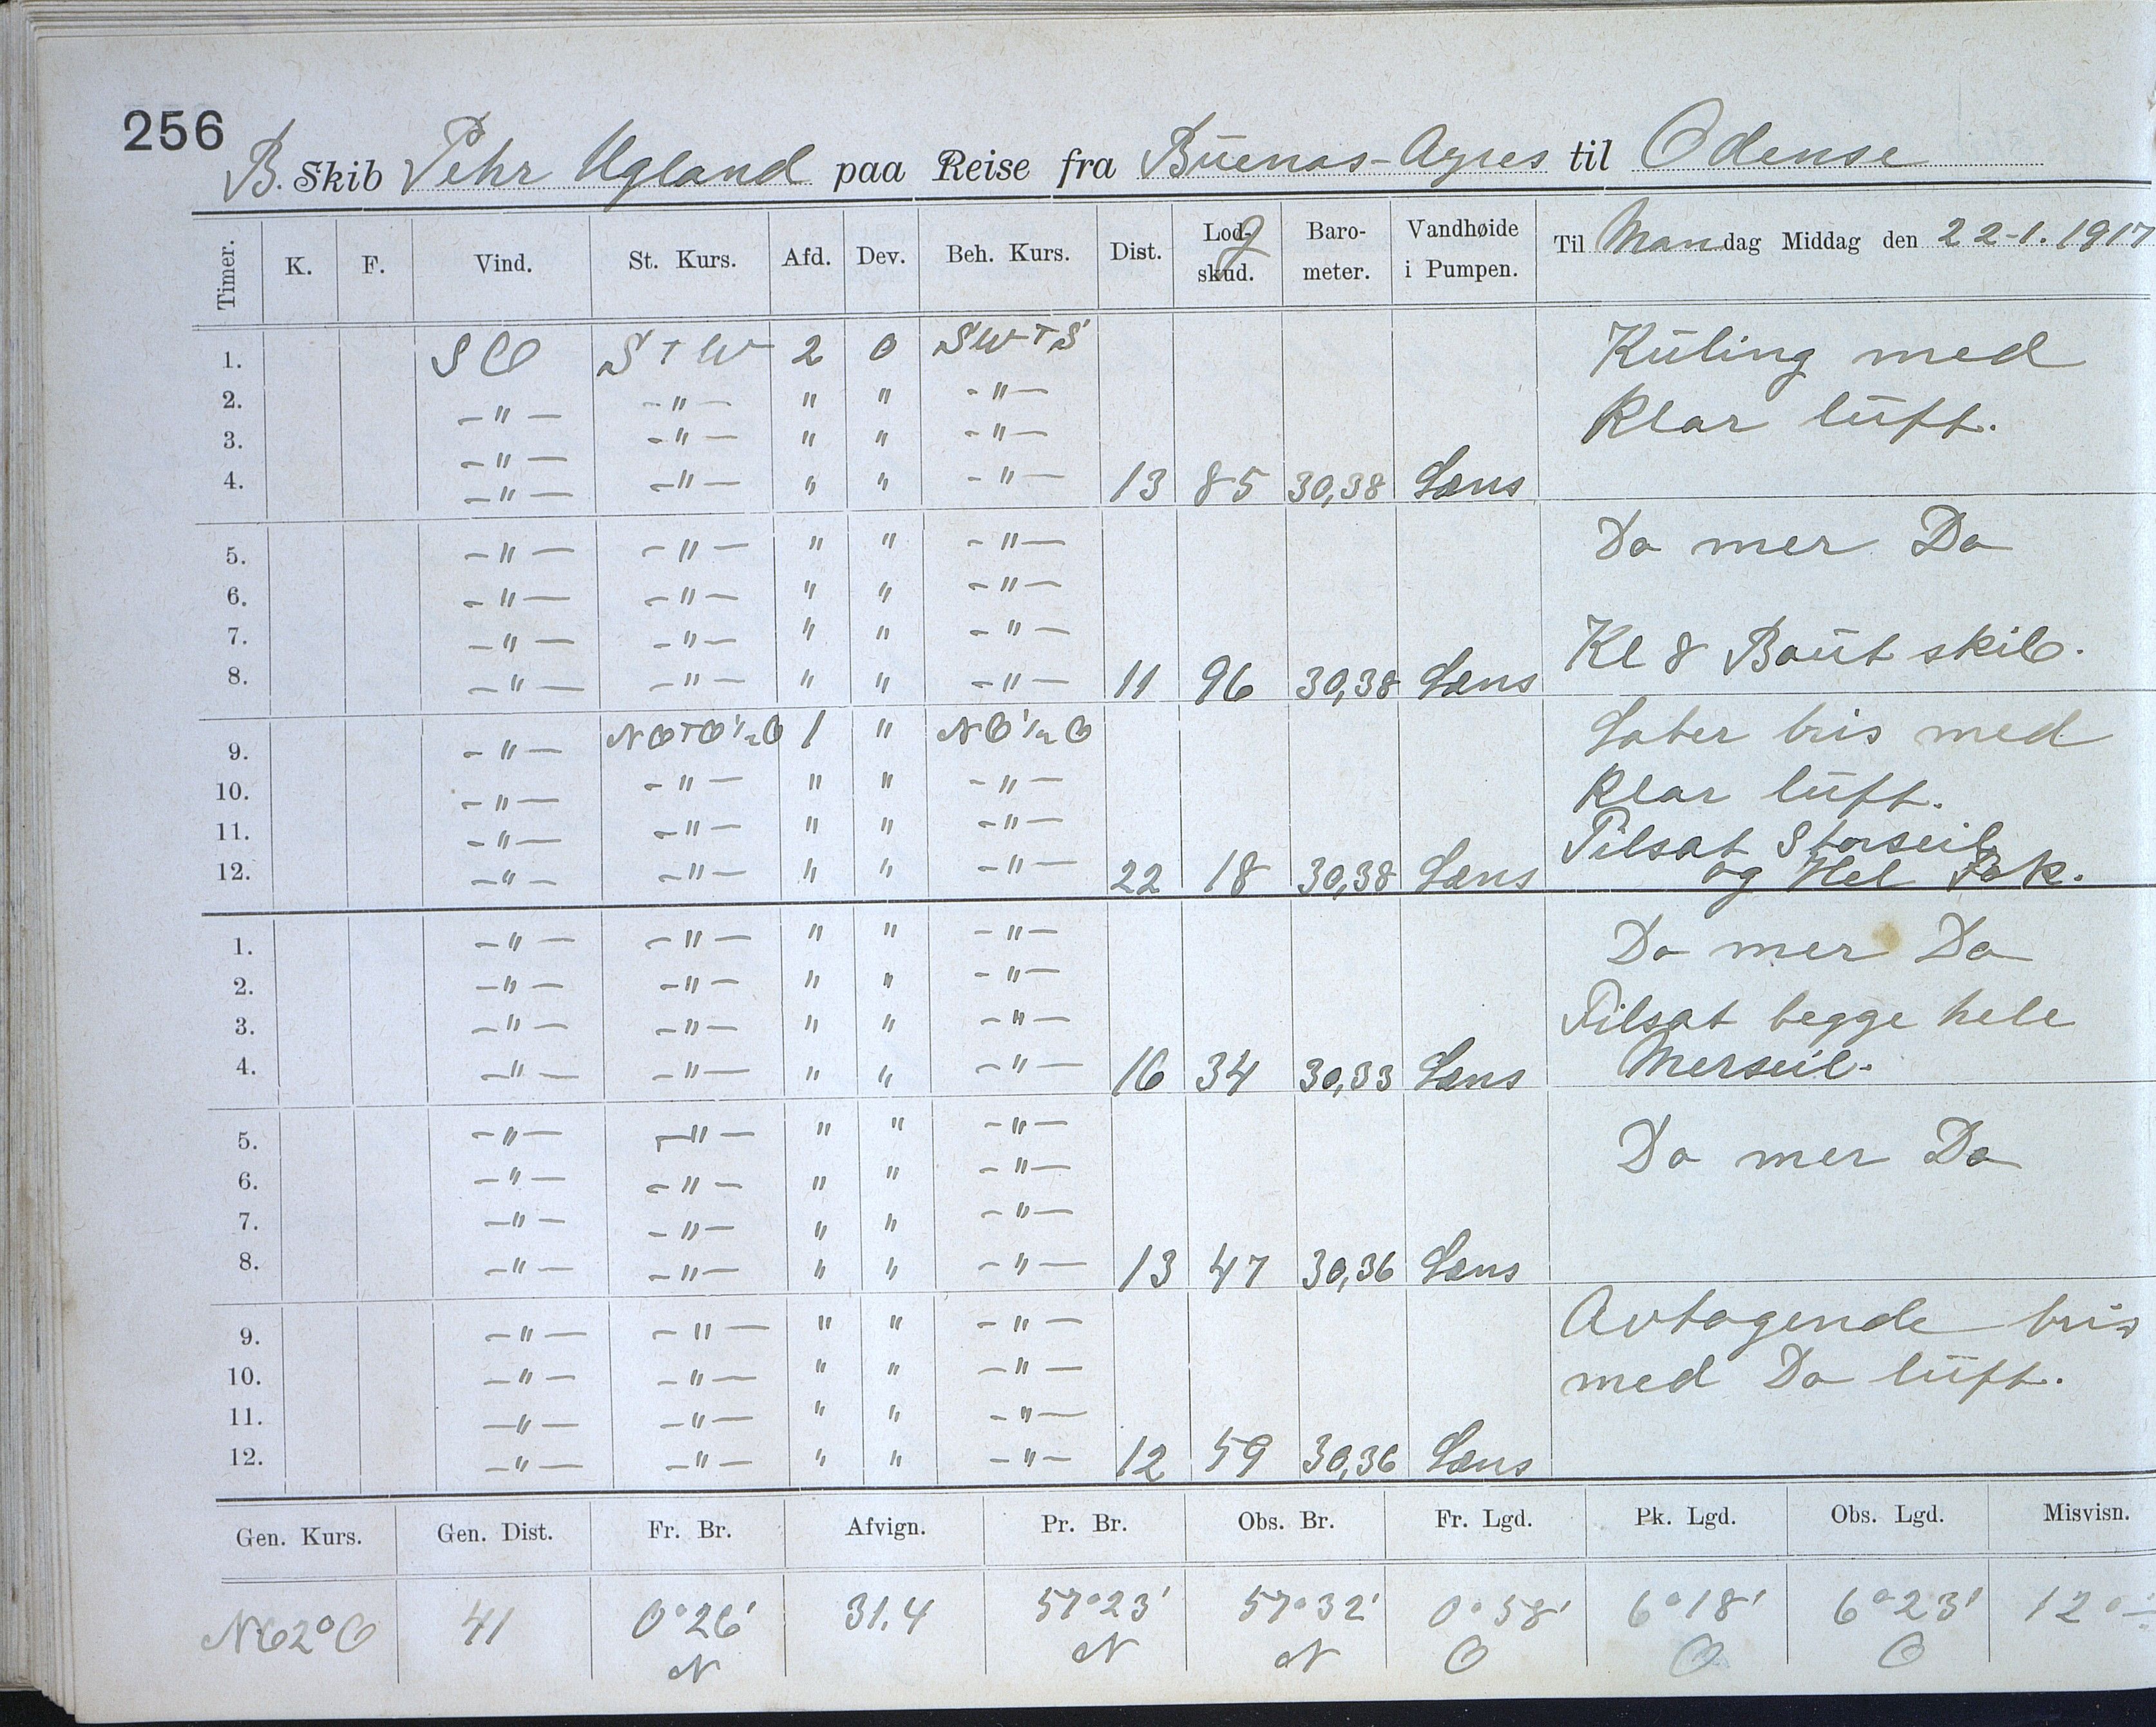 256
B. Skib Pehr Ugland paa Reise fra Buenos-Ayres til Odense
Timer. K. F. Vind. St. Kurs. Afd. Dev. Beh. Kurs. Dist. Log- skud. Baro- meter. Vandhøide i Pumpen. Til Mandag Middag den 22-1.1917
1. SO StW 2 0 SWtS Kuling med
2. -"- -"- " " -"- klar luft.
3. -"- -"- " " -"-
4. -"- -"- " " -"- 13 85 30,38 Læns
5. -"- -"- " " -"- Do mer Do
6. -"- -"- " " -"-
7. -"- -"- " " -"- Kl 8 Baut skib.
8. -"- -"- " " -"- 11 96 30,38 Læns
9. -"- NOtO½O 1 " NO½O Laber bris med
10. -"- -"- " " -"- klar luft.
11. -"- -"- " " -"- Tilsat Storseil
12. -"- -"- " " -"- 22 18 30,38 Læns og Hel Fok.
1. -"- -"- " " -"- Do mer Do
2. -"- -"- " " -"-
3. -"- -"- " " -"- Tilsat begge hele
4. -"- -"- " " -"- 16 34 30,33 Læns Merseil.
5. -"- -"- " " -"- Do mer Do
6. -"- -"- " " -"-
7. -"- -"- " " -"-
8. -"- -"- " " -"- 13 47 30,36 Læns
9. -"- -"- " " -"- Avtagende bris
10. -"- -"- " " -"- med Do luft.
11. -"- -"- " " -"-
12. -"- -"- " " -"- 12 59 30,36 Læns
Gen. Kurs. Gen. Dist. Fr. Br. Afvign. Pr. Br. Obs. Br. Fr. Lgd. Pk. Lgd. Obs. Lgd. Misvisn.
N62°O 41 0°26' 31.4 57°23' 57°32' 0°58' 6°18' 6°23' 12°
N N N O O O